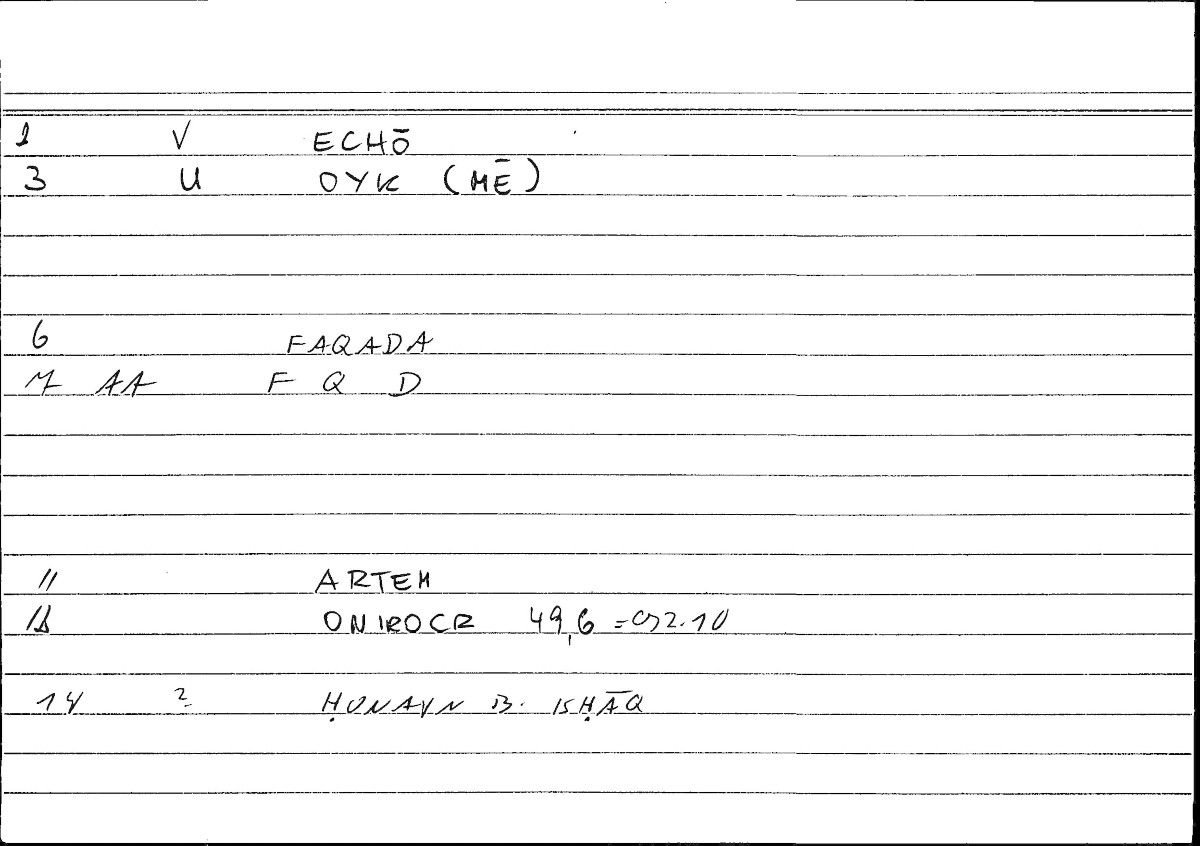 1 V ECHŌ
3 U OYK (MĒ)
6 FAQADA
7 AA F Q D
11 ARTEM
ONIROCR 49,6 = 92.10
14 2 ḤUNAYN B. ISḤĀQ